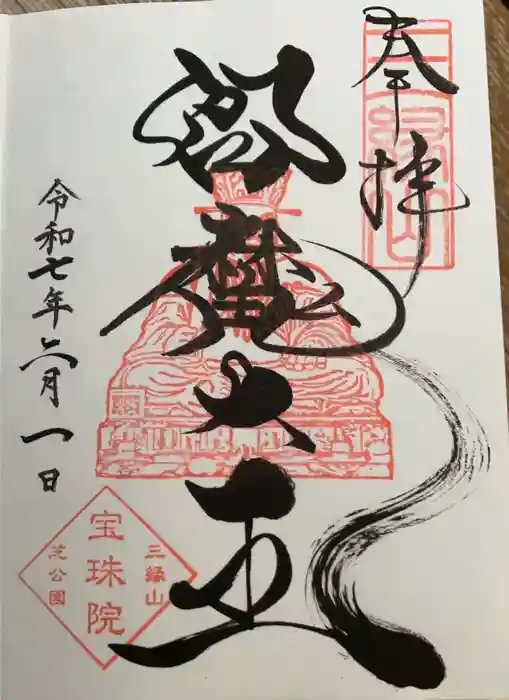 奉拝
閻魔大王
令和七年六月一日
三縁山
宝珠院
芝公園